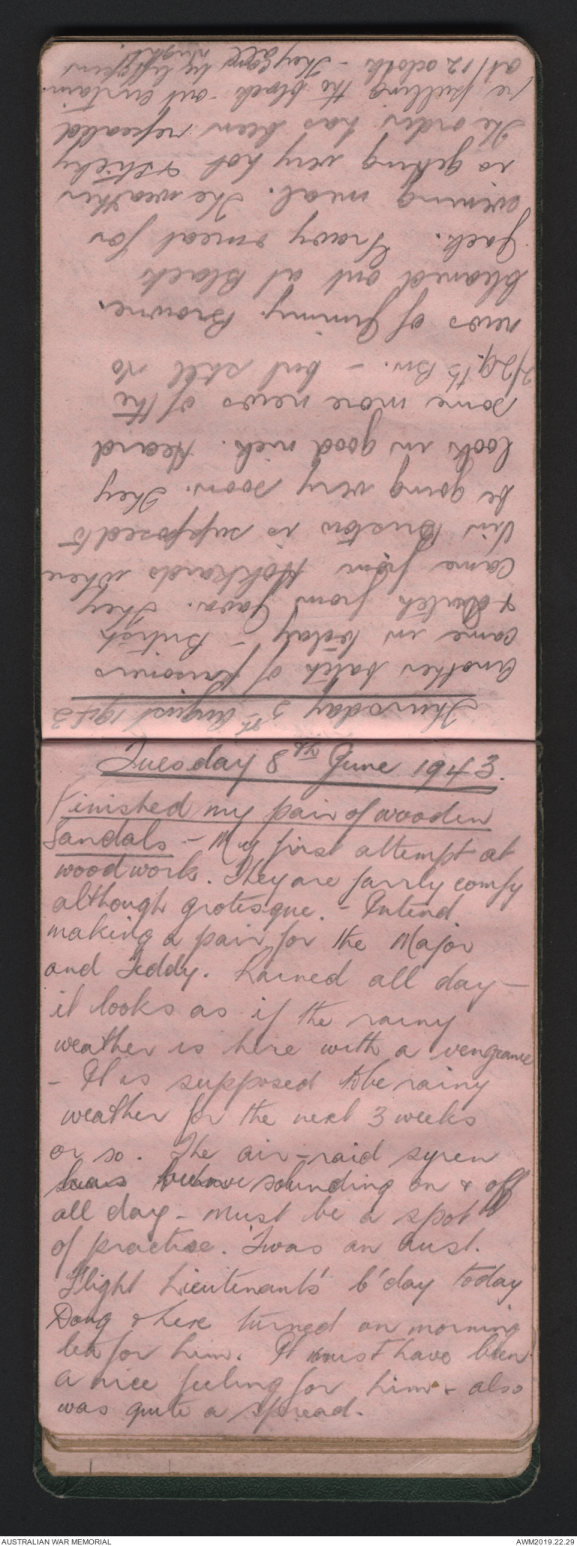 Thursday 5th August 1943
Another batch of prisoners
came in today - British
& Dutch from Java. They
came from Hokkardo where
Viv Buxton is supposed to
be going very soon. They
look in good nick. Heard
some more news of the
2/29th Bn. - but still no
news of Jimmy Browne.
blamed out at Black
Jack. Gravy meat for
evening meal. The weather
is getting very hot & sticky
The order has been repealed
re pulling the black-out curtain
at 12 oclock - They can be left open
all night.
Tuesday 8th June 1943.
Finished my pair of wooden
Sandals - My first attempt at
woodwork. They are fairly comfy
although grotesque. - Intend
making a pair for the Major
and Teddy. Rained all day -
it looks as if the rainy
weather is here with a vengeance
- It is supposed to be rainy
weather for the next 3 weeks
or so. The air-raid syren
has been sounding on & off
all day - must be a spot
of practise. 'Twas an Aust.
Flight Lieutenants' b'day today
Doug & Lex turned on morning
tea for him. It must have been
a nice feeling for him & also
was quite a spread.
AUSTRALIAN WAR MEMORIAL
AWM2019.22.29